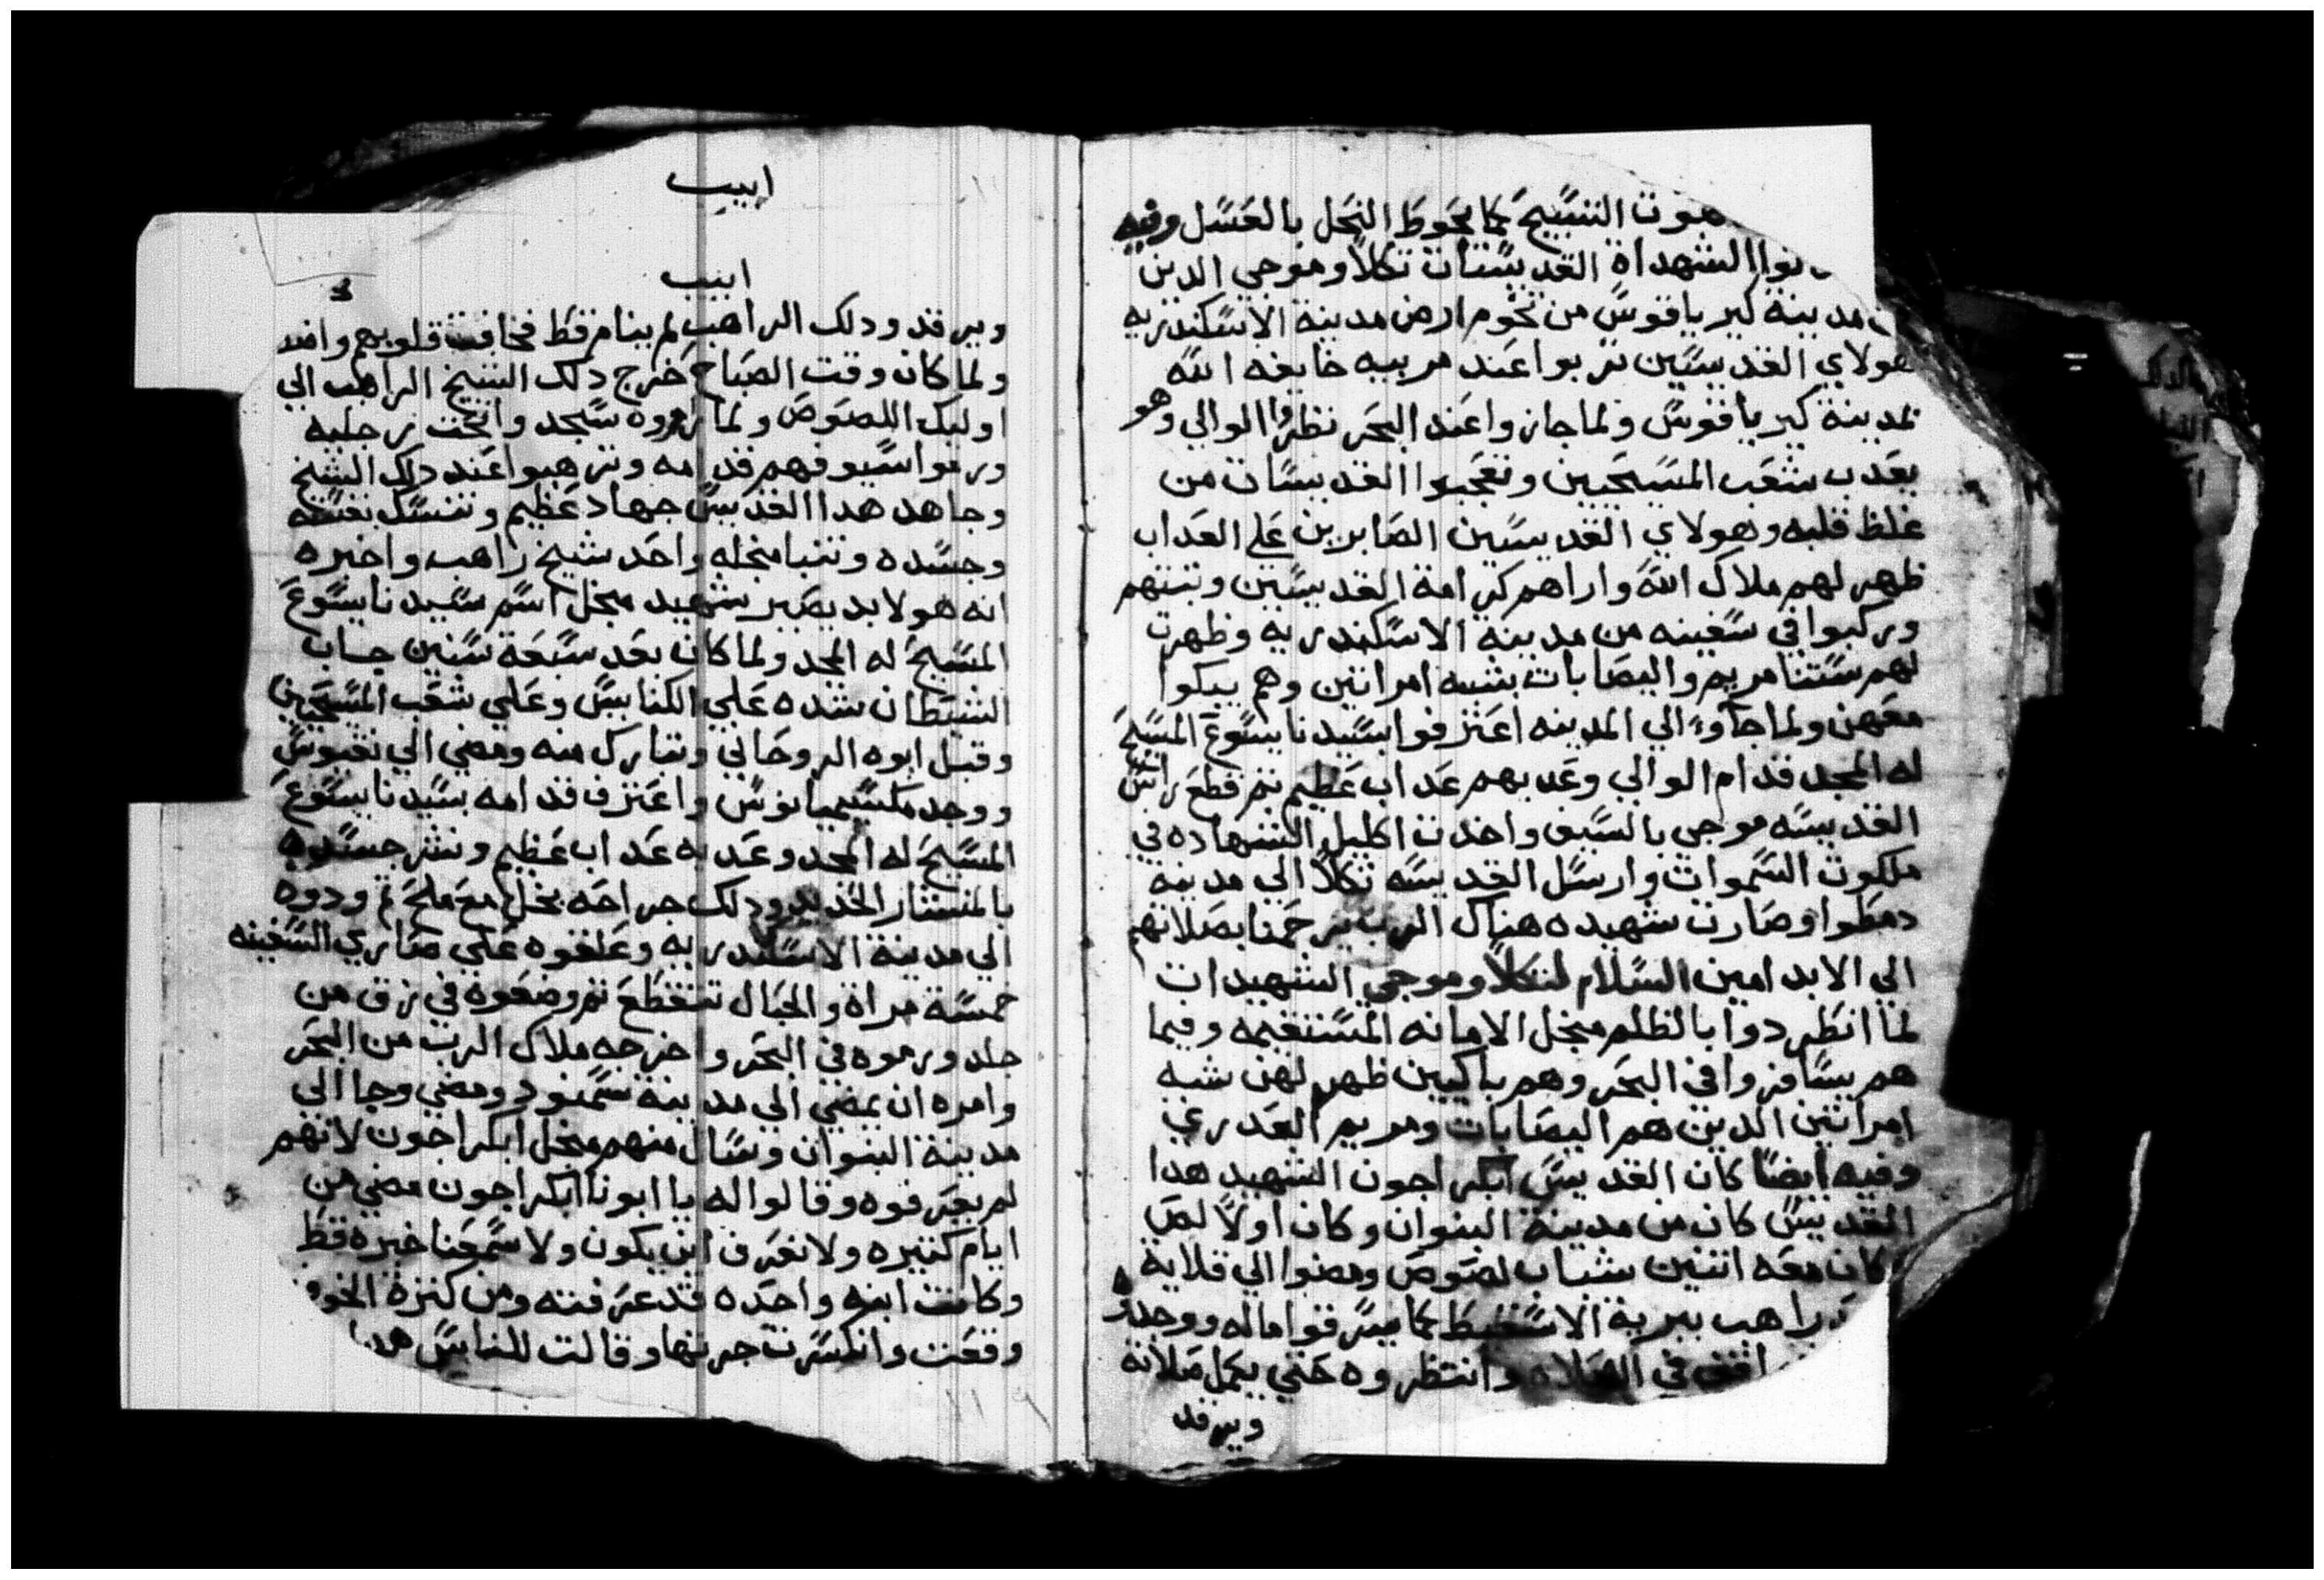 هوت المسيح كما يحوط النحل بالعسل وفيه
الشهداة القديسات تكلا وموجي الدين
مدينة كير يا قوس من تخوم ارض مدينة الاسكندريه
هولاي القديسين تربوا عند مربيه خايفه الله
لمدينة كير يا قوس ولما جازوا عند البحر نظروا الوالي وهو
يعدب شعب المسيحيين وتعجبوا القديسات من
غلظ قلبه وهولاي القديسين الصابرين علي العداب
ظهر لهم ملاك الله واراهم كرامة القديسين وتبتهم
وركبوا في سفينه من مدينة الاسكندريه وظهرت
لهم ستنا مريم واليصابات بشبه امراتين وهم يبكوا
معهن ولما جاوا الي المدينه اعترفوا بسيدنا يسوع المسيح
له المجد قدام الوالي وعدبهم عداب عظيم تم قطع راس
القديسه موجي بالسيف واخدت اكليل الشهاده في
ملكوت السموات وارسل القديسه تكلا الي مدينة
دمطوا وصارت شهيده هناك الرب يرحمنا بصلاتهم
الي الابد امين السلام لتكلا وموجي الشهيدات
لما انطردوا بالظلم منجل الامانه المستقيمه وفيما
هم يسافروا في البحر وهم باكيين ظهر لهن شبه
امراتين الدين هم اليصابات ومريم العدري
وفيه ايضا كان القديس ابكراجون الشهيد هدا
القديس كان من مدينة البنوان وكان اولا لص
كان معه اتنين شباب لصوص ومضوا الي قلاية
راهب ببرية الاسقيط كما يسرقوا ماله ووجدوه
في الصلاه وانتظروه حتي يكمل صلاته
ويرقد
ابيب
ابيب
ويرقد ودلك الراهب لم ينام قط فخافت قلوبهم
ولما كان وقت الصباح خرج دلك الشيخ الراهب الي
اوليك اللصوص ولما راوه سجد وا تحت رجليه
ورموا سيوفهم قدامه وترهبوا عند داك الشيخ
وجاهد هدا القديس جهاد عظيم وتنسك بنفسه
وجسده وتنبا منجله واحد شيخ راهب واخبره
انه هو لابد يصير شهيد منجل اسم سيدنا يسوع
المسيح له المجد ولما كان بعد ستة سنين جاب
الشيطان شده علي الكنايس وعلي شعب المسيحيين
وقبل ابوه الروحاني وتبارك منه ومضي الي نقيوس
ووجد مكسيميانوس واعترف قدامه بسيدنا يسوع
المسيح له المجد وعدبه عداب عظيم ونشر جسده
بالمنشار الحديد ودلك جراحه بخل مع ملح تم ودوه
الي مدينة الاسكندريه وعلقوه علي صاري السفينه
خمسة مراة والحبال تتقطع تم وضعوه في زق من
جلد ورموه في البحر واخرجه ملاك الرب من البحر
وامره ان يمضي الي مدينة سمنود ومضي وجا الي
مدينة البنوان وسال منهم منجل ابكراجون لانهم
لم يعرفوه وقالوا له يا ابونا ابكراجون مضي من
ايام كتيره ولا نعرف اين يكون ولا سمعنا خبره قط
وكانت ابنه واحده قد عرفته ومن كترة الخوف
وقعت وانكسرت جرتها وقالت للناس هدا